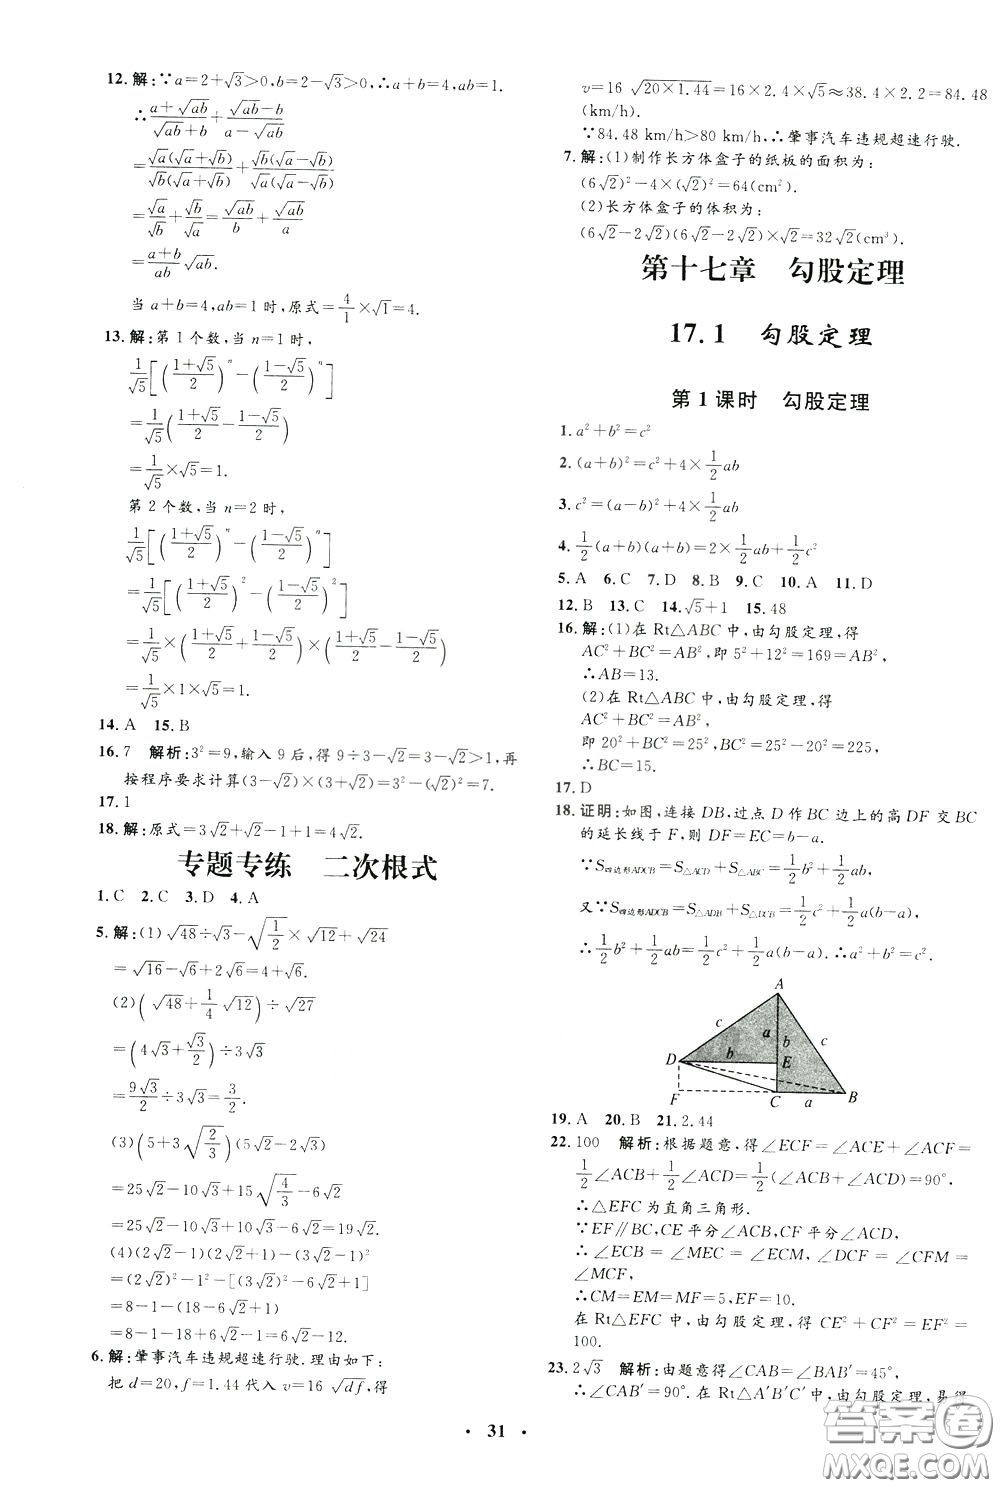 12.解:∵a=2+√3>0,b=2-√3>0,∴a+b=4,ab=1.
∴(a+√ab)/(√ab+b)+(√ab-b)/(a-√ab)
=√a(√a+√b)/√b(√a+√b)+√b(√a-√b)/√a(√a-√b)
=√a/√b+√b/√a=√ab/b+√ab/a
=(a+b)/ab √ab.
当a+b=4,ab=1时,原式=4/1×√1=4.
13.解:第1个数,当n=1时,
1/√5[((1+√5)/2)ⁿ-((1-√5)/2)ⁿ]
=1/√5((1+√5)/2-(1-√5)/2)
=1/√5×√5=1.
第2个数,当n=2时,
1/√5[((1+√5)/2)ⁿ-((1-√5)/2)ⁿ]
=1/√5[((1+√5)/2)²-((1-√5)/2)²]
=1/√5×((1+√5)/2+(1-√5)/2)×((1+√5)/2-(1-√5)/2)
=1/√5×1×√5=1.
14.A 15.B
16.7 解析:3²=9,输入9后,得9÷3-√2=3-√2>1,再
按程序要求计算(3-√2)×(3+√2)=3²-(√2)²=7.
17.1
18.解:原式=3√2+√2-1+1=4√2.
专题专练 二次根式
1.C 2.C 3.D 4.A
5.解:(1)√48÷√3-√(1/2)×√12+√24
=√16-√6+2√6=4+√6.
(2)(√48+1/4√12)÷√27
=(4√3+√3/2)÷3√3
=9√3/2÷3√3=3/2.
(3)(5+3√(2/3))(5√2-2√3)
=25√2-10√3+15√(4/3)-6√2
=25√2-10√3+10√3-6√2=19√2.
(4)(2√2-1)(2√2+1)-(3√2-1)²
=(2√2)²-1²-[(3√2)²-6√2+1]
=8-1-(18-6√2+1)
=8-1-18+6√2-1=6√2-12.
6.解:肇事汽车违规超速行驶.理由如下:
把d=20,f=1.44代入v=16√df,得
v=16√(20×1.44)=16×2.4×√5≈38.4×2.2=84.48
(km/h).
∵84.48 km/h>80 km/h,∴肇事汽车违规超速行驶.
7.解:(1)制作长方体盒子的纸板的面积为:
(6√2)²-4×(√2)²=64(cm²).
(2)长方体盒子的体积为:
(6√2-2√2)(6√2-2√2)×√2=32√2(cm³).
第十七章 勾股定理
17.1 勾股定理
第1课时 勾股定理
1.a²+b²=c²
2.(a+b)²=c²+4×1/2ab
3.c²=(a-b)²+4×1/2ab
4.1/2(a+b)(a+b)=2×1/2ab+1/2c²
5.A 6.C 7.D 8.B 9.C 10.A 11.D
12.B 13.C 14.√5+1 15.48
16.解:(1)在Rt△ABC中,由勾股定理,得
AC²+BC²=AB²,即5²+12²=169=AB²,
∴AB=13.
(2)在Rt△ABC中,由勾股定理,得
AC²+BC²=AB²,
即20²+BC²=25²,BC²=25²-20²=225,
∴BC=15.
17.D
18.证明:如图,连接DB,过点D作BC边上的高DF交BC
的延长线于F,则DF=EC=b-a.
∵S四边形ADCB=S△ACD+S△ABC=1/2b²+1/2ab,
又∵S四边形ADCB=S△ADB+S△DCB=1/2c²+1/2a(b-a),
∴1/2b²+1/2ab=1/2c²+1/2a(b-a),∴a²+b²=c².
A
c a b c
D b E
F C a B
19.A 20.B 21.2.44
22.100 解析:根据题意,得∠ECF=∠ACE+∠ACF=
1/2∠ACB+1/2∠ACD=1/2(∠ACB+∠ACD)=90°,
∴△EFC为直角三角形.
∵EF∥BC,CE平分∠ACB,CF平分∠ACD,
∴∠ECB=∠MEC=∠ECM,∠DCF=∠CFM=
∠MCF,
∴CM=EM=MF=5,EF=10.
在Rt△EFC中,由勾股定理,得CE²+CF²=EF²=
100.
23.2√3 解析:由题意得∠CAB=∠BAB′=45°,
∴∠CAB′=90°.在Rt△A′B′C′中,由勾股定理,易得
· 31 ·
答案圈
MXQE.COM